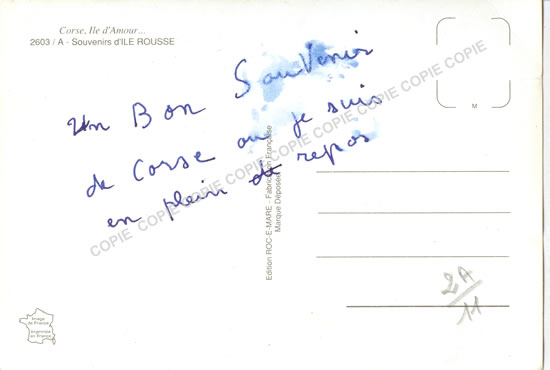 Corse, Ile d'Amour...
2603 / A - Souvenirs d'ILE ROUSSE
un Bon Souvenir
de Corse ou je suis
en plein de repos
COPIE COPIE COPIE COPIE COPIE COPIE COPIE COPIE COPIE
Edition ROC-E-MARE - Fabrication Française
Marque Déposée
M
2A/11
Image
de France
Imprimée en
France